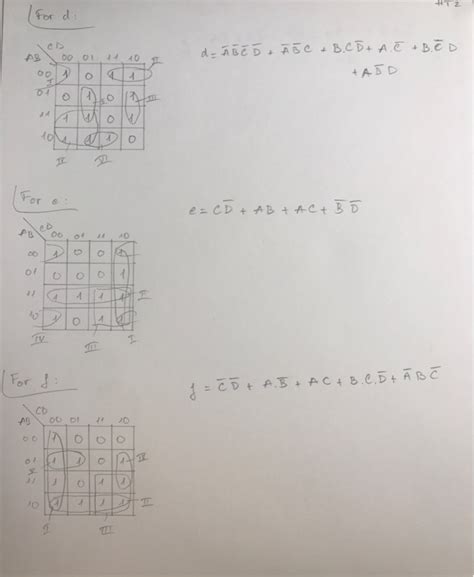 HT2
For d:
d = A̅B̅C̅D̅ + A̅B̅C + B.CD̅ + A.C̅ + B.C̅D
+ AB̅D
CD
AB 00 01 11 10
00 1 0 1 1 II
I
01 0 1 0 1 III
11 1 1 0 1
10 1 1 1 0
II VI
For e:
e = CD̅ + AB + AC + B̅D̅
CD
AB 00 01 11 10
00 1 0 0 1
01 0 0 0 1
11 1 1 1 1 II
10 1 0 1 1
IV III I
For f:
f = C̅D̅ + A.B̅ + AC + B.C.D̅ + A̅BC̅
CD
AB 00 01 11 10
00 1 0 0 0
01 1 1 0 1 IV
V
11 1 0 1 1
10 1 1 1 1 II
I III